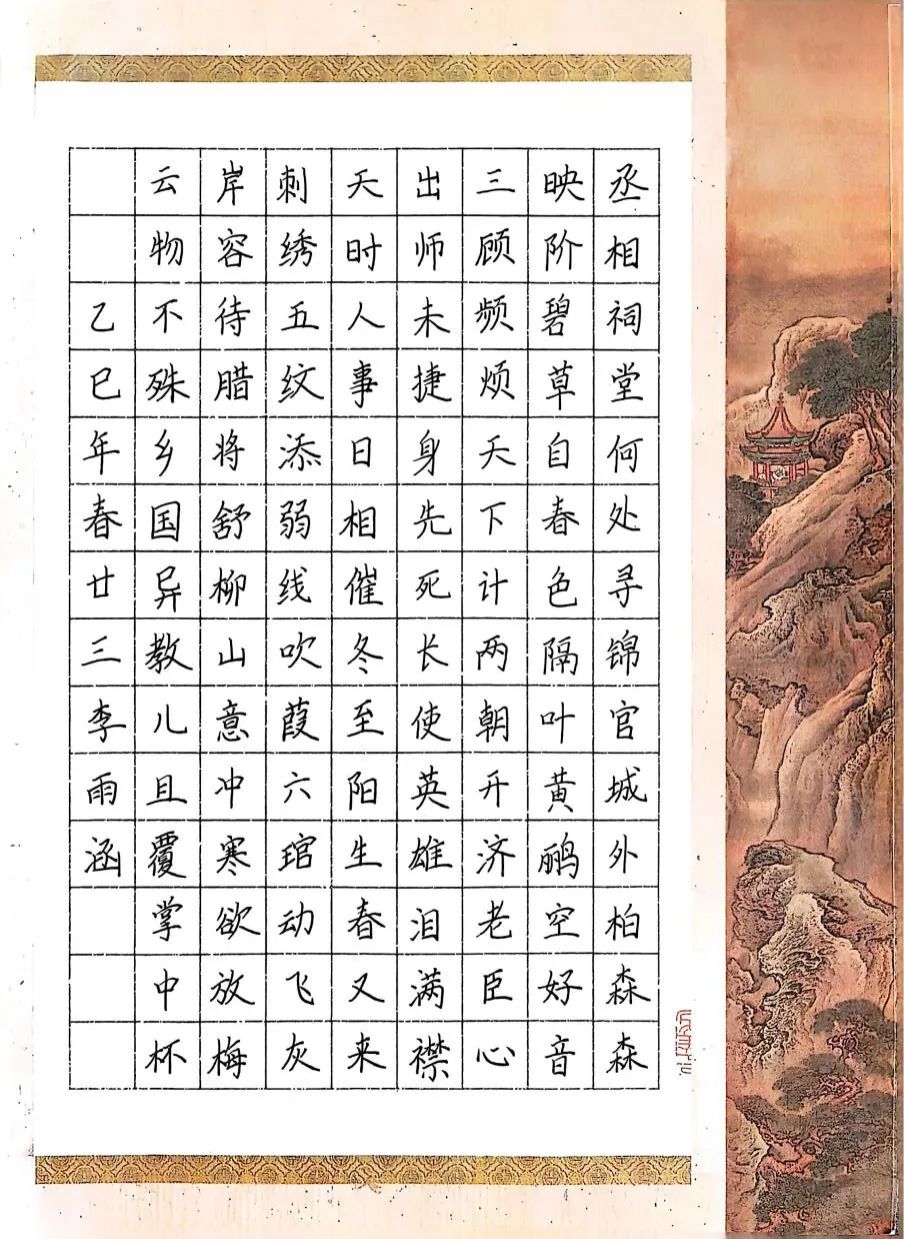 丞相祠堂何处寻锦官城外柏森森
映阶碧草自春色隔叶黄鹂空好音
三顾频烦天下计两朝开济老臣心
出师未捷身先死长使英雄泪满襟
天时人事日相催冬至阳生春又来
刺绣五纹添弱线吹葭六琯动飞灰
岸容待腊将舒柳山意冲寒欲放梅
云物不殊乡国异教儿且覆掌中杯
乙巳年春廿三李雨涵